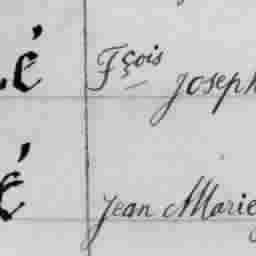 é Fçois Joseph
é Jean Marie